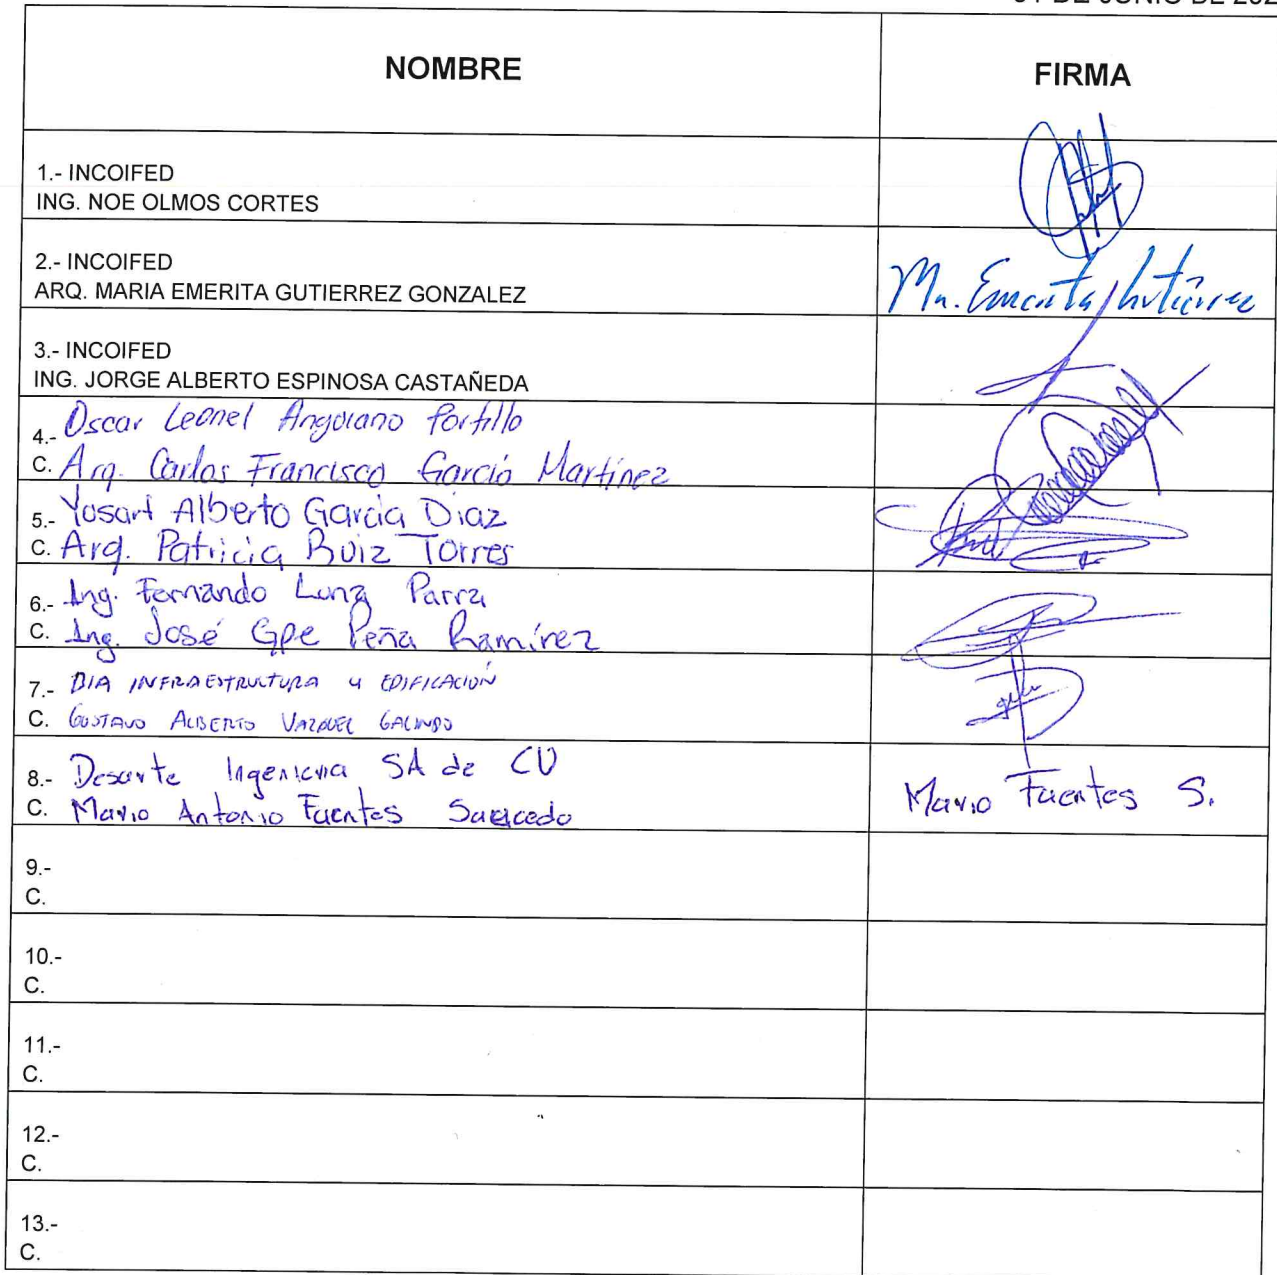 DE JUNIO DE 202
NOMBRE
FIRMA
1.- INCOIFED
ING. NOE OLMOS CORTES
2.- INCOIFED
ARQ. MARIA EMERITA GUTIERREZ GONZALEZ
Ma. Emerita Gutiérrez
3.- INCOIFED
ING. JORGE ALBERTO ESPINOSA CASTAÑEDA
4.- Oscar Leonel Angoiano Portillo
C. Arq. Carlos Francisco García Martínez
5.- Yosart Alberto García Diaz
C. Arq. Patricia Ruiz Torres
6.- Ing. Fernando Luna Parra
C. Ing. José Gpe Peña Ramírez
7.- DIA INFRAESTRUCTURA Y EDIFICACIÓN
C. GUSTAVO ALBERTO VAZQUEZ GALINDO
8.- Desarte Ingenieria SA de CV
C. Mario Antonio Fuentes Saucedo
Mario Fuentes S.
9.-
C.
10.-
C.
11.-
C.
12.-
C.
13.-
C.